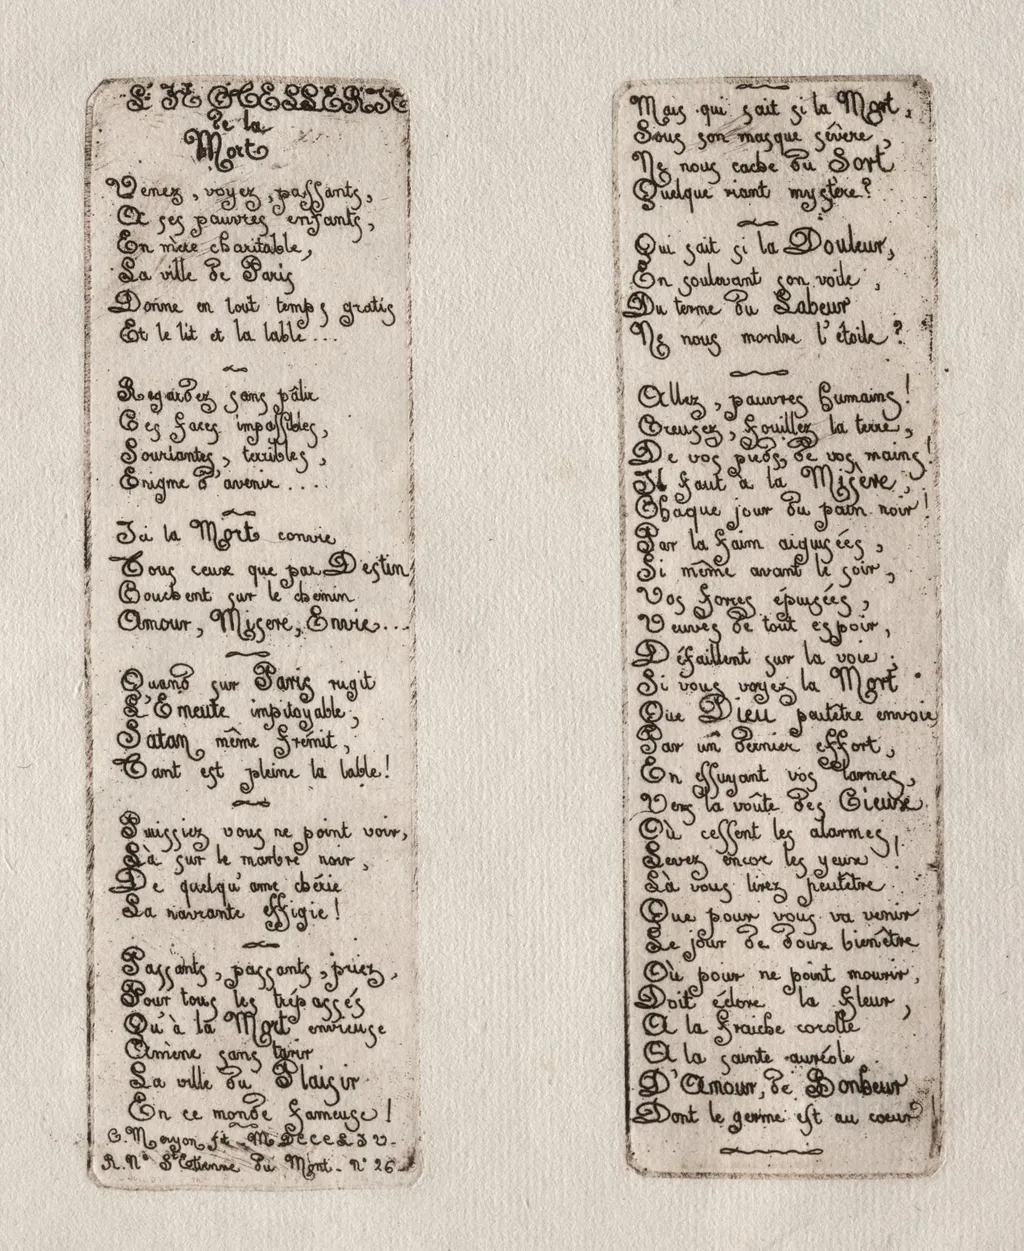 L'HOTELLERIE
De la
Mort
Venez, voyez, passants,
A ses pauvres enfants,
En mère charitable,
La ville de Paris
Donne en tout temps gratis
Et le lit et la table...
Regardez sans pâlir
Ces faces impassibles,
Souriantes, terribles,
Enigme d'avenir....
Ici la Mort convie
Tous ceux que par Destin
Couchent sur le chemin
Amour, Misere, Envie...
Quand sur Paris rugit
L'Emeute impitoyable,
Satan même frémit,
Tant est pleine la table!
Puissiez vous ne point voir,
Là sur le marbre noir,
De quelqu'ame chérie
La navrante effigie!
Passants, passants, priez,
Pour tous les trépassés
Qu'à la Mort envieuse
Amène sans tarir
La ville du Plaisir
En ce monde fameuse!
C. Meryon ft - MDCCCLIV -
R. Ne St Etienne du Mont - no 26
Mais qui sait si la Mort,
Sous son masque sévère,
Ne nous cache du Sort
Quelque riant mystère?
Qui sait si la Douleur,
En soulevant son voile,
Du terme du Labeur
Ne nous montre l'étoile?
Allez, pauvres humains!
Creusez, fouillez la terre,
De vos pieds, de vos mains!
Il faut à la Misère,
Chaque jour du pain noir!
Par la faim aiguisées,
Si même avant le soir,
Vos forces épuisées,
Veuves de tout espoir,
Défaillent sur la voie;
Si vous voyez la Mort
Que Dieu peutètre envoie,
Par un dernier effort,
En essuyant vos larmes,
Vers la voûte des Cieux
Où cessent les alarmes,
Levez encor les yeux!
Là vous lirez peutêtre
Que pour vous va venir
Le jour de doux bienêtre
Où pour ne point mourir,
Doit éclore la fleur,
A la fraiche corolle
A la sainte auréole
D'Amour, de Bonheur
Dont le germe est au coeur!